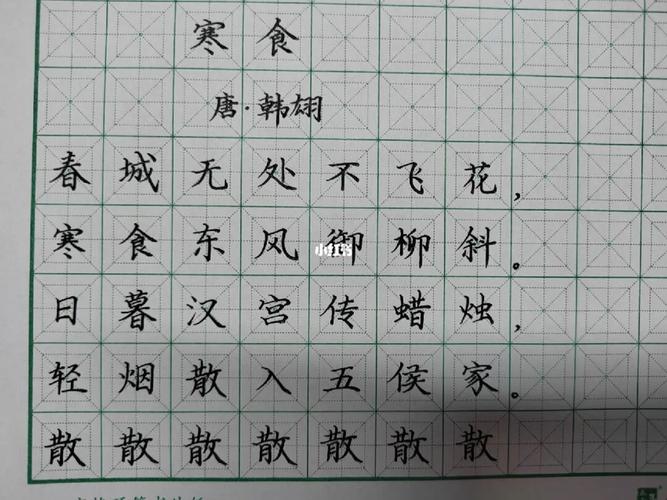 寒食
唐·韩翃
春城无处不飞花，
寒食东风御柳斜。
日暮汉宫传蜡烛，
轻烟散入五侯家。
散散散散散散散
小红书